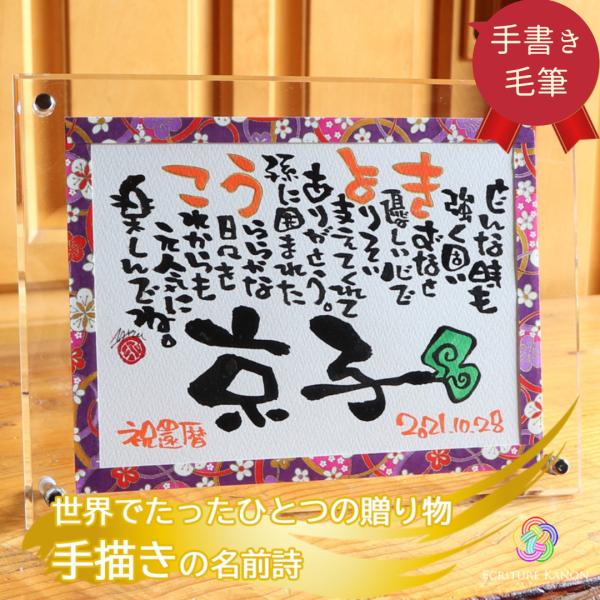 手書き
毛筆
どんな時も
強く固い
きずなと
優しい心で
よりそい
支えてくれて
ありがとう。
孫に囲まれた
うららかな
日々も
これからも
元気に
楽しんでね。
京子
祝還暦
2021.10.28
世界でたったひとつの贈り物
手描きの名前詩
ECRITURE KANON